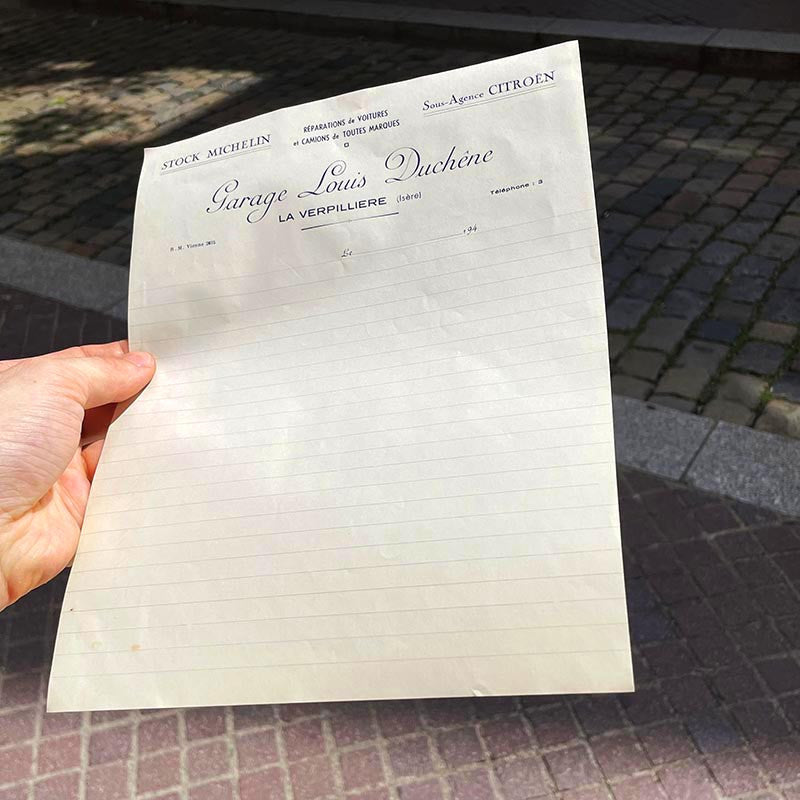 STOCK MICHELIN
RÉPARATIONS de VOITURES
et CAMIONS de TOUTES MARQUES
Sous-Agence CITROEN
Garage Louis Duchêne
LA VERPILLIERE (Isère)
Téléphone : 3
R. M. Vienne
Le , 194